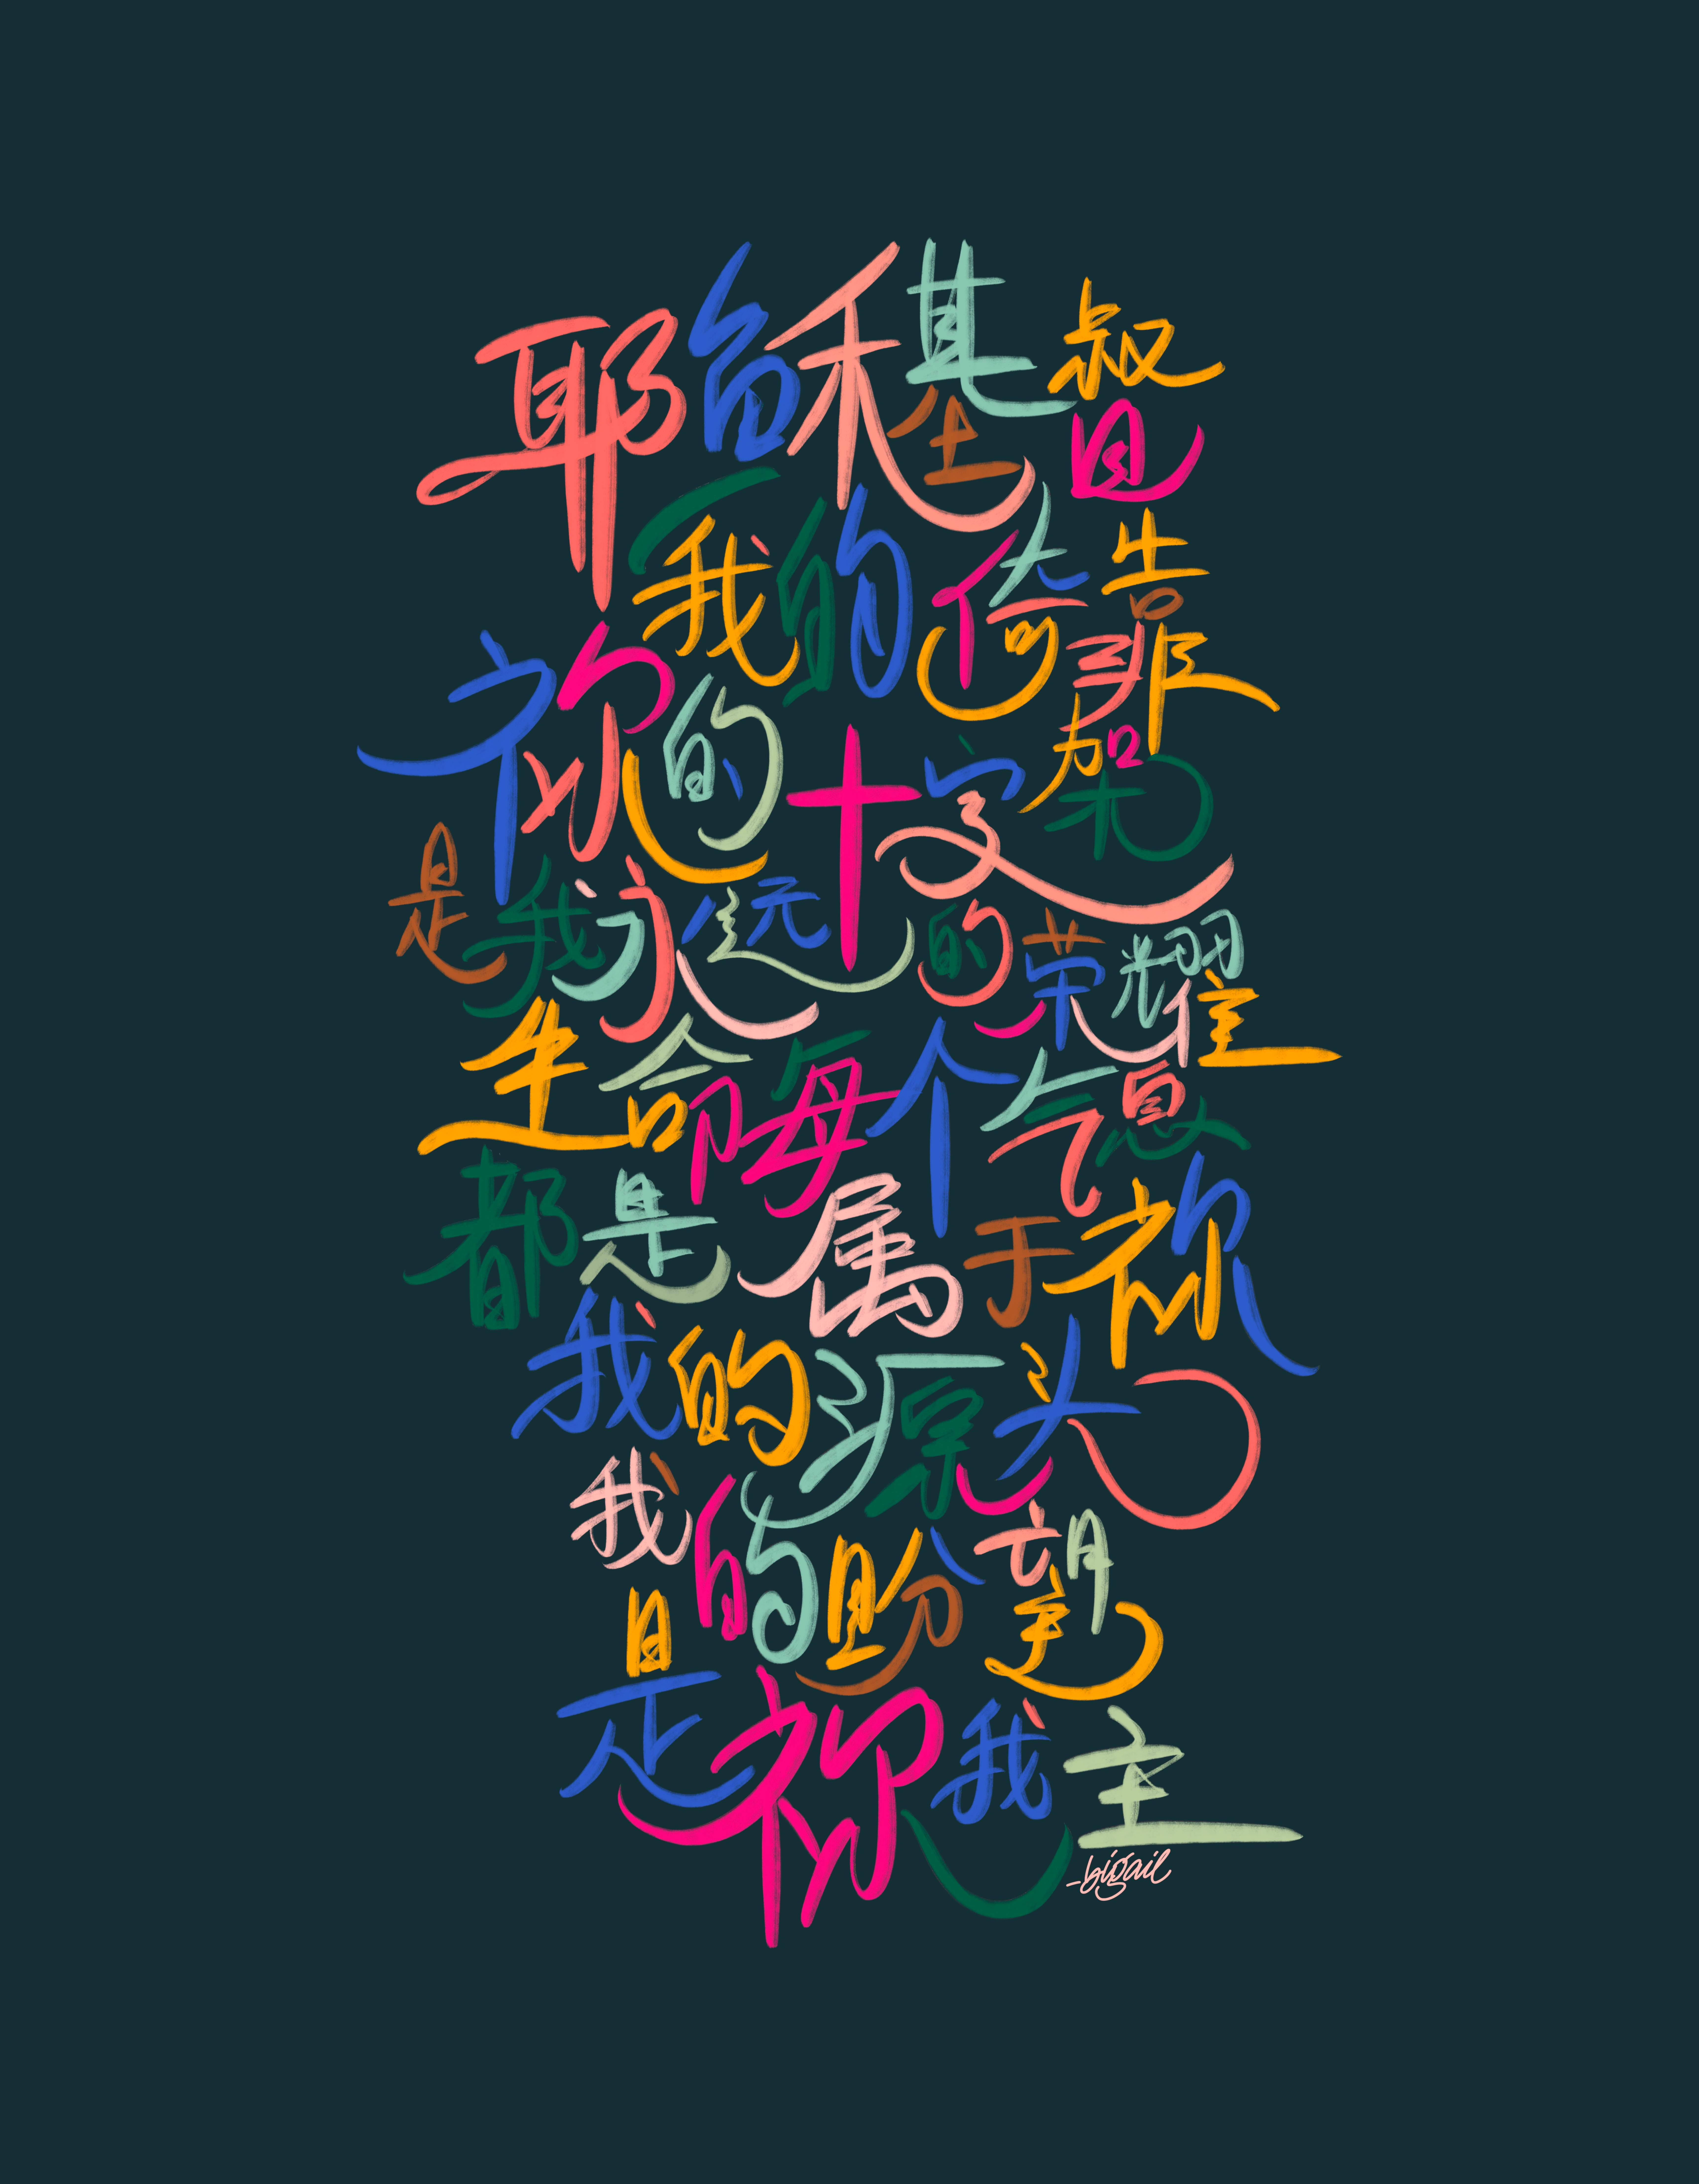 耶稣基督
我的倚靠
祢的十字架
是我永远的荣耀
生命每个气息
都是属于祢
我的源头
我的盼望
是祢我主
-bigail